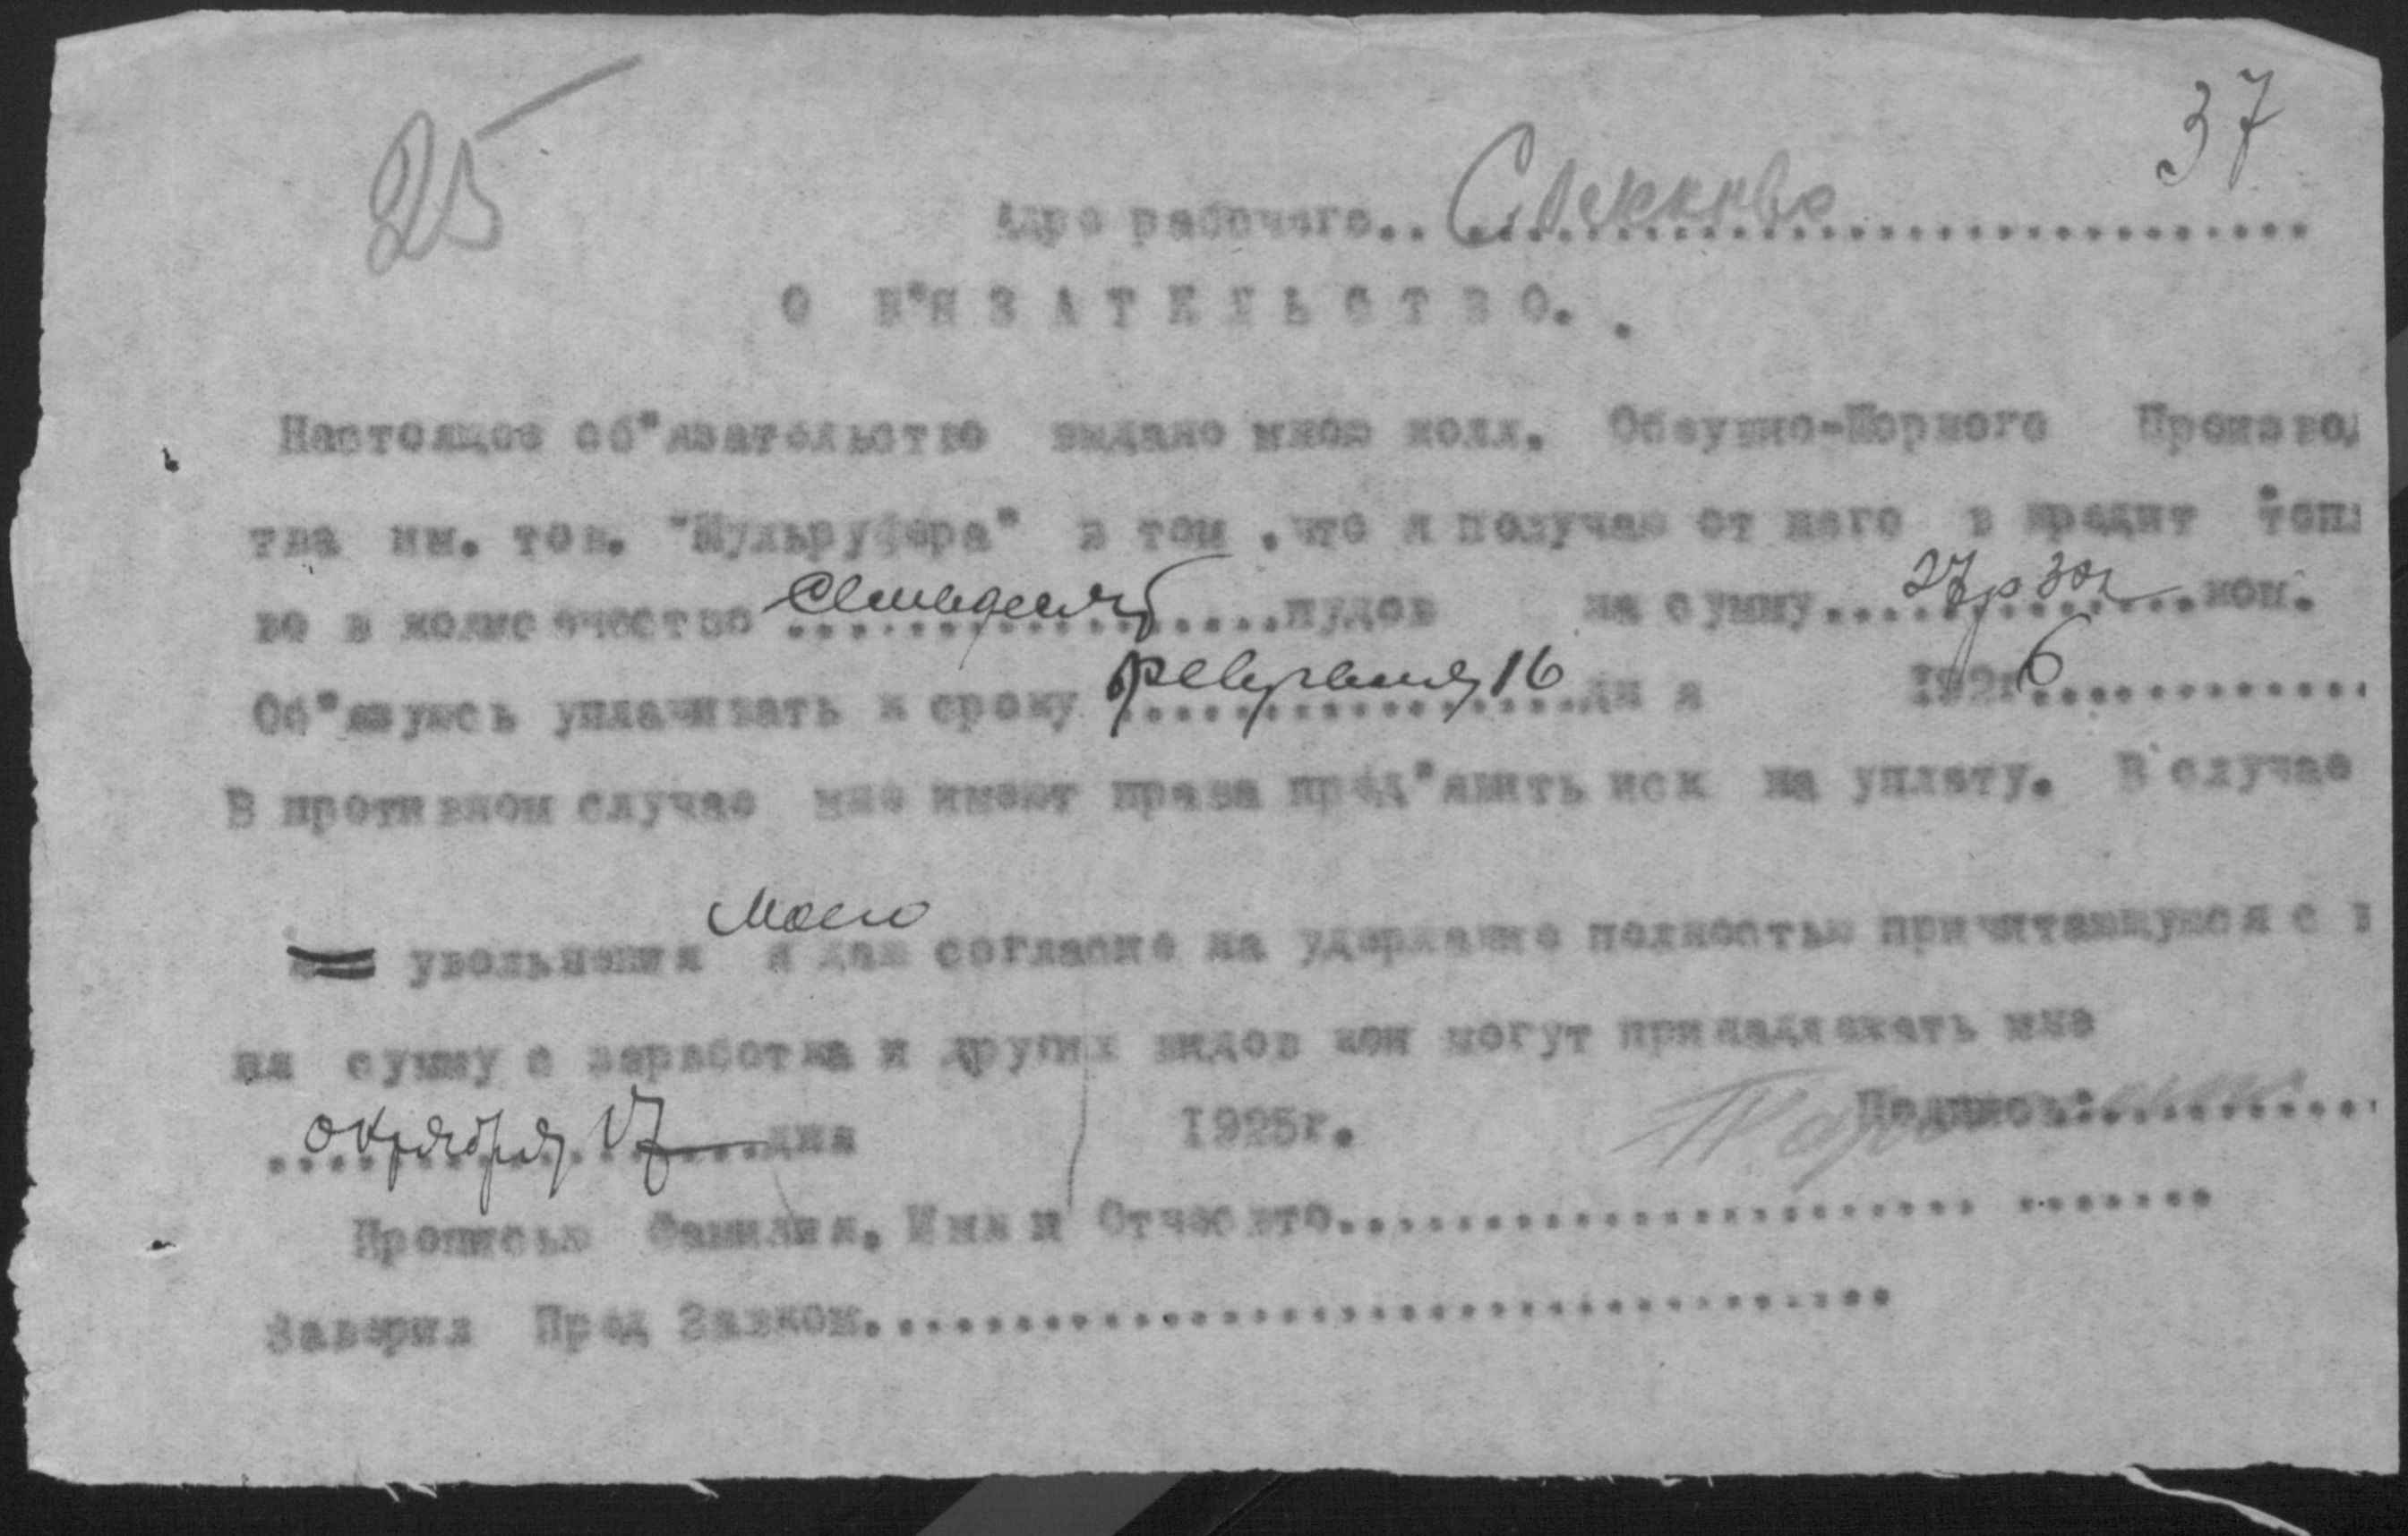 25
37
Адре рабочего..
О Б"Я З А Т Е Л Ь С Т В О. .
Настоящее об"язательство выдано мною колл. Обсувно-Шорного Производ
тва им. тов. "Мульруфера" в том .что я получаю от него в кредит топл
во в количечество семьдесят пудов на сумму 27р 30к коп.
Об"язуюсь уплачивать к сроку февраля 16 дн я 192 6
В противном случае мне имеют права пред"явить иск на уплату. В случае
увольнения моего я даю согласие на удержание полностью причитающуюся с
ня сумму с заработка и других видов кои могут принадлежать мне
октября 17 дня 1925г. Подпись:
Прописью Фамилия, Имя и Отчество
Заверил Пред Завком.